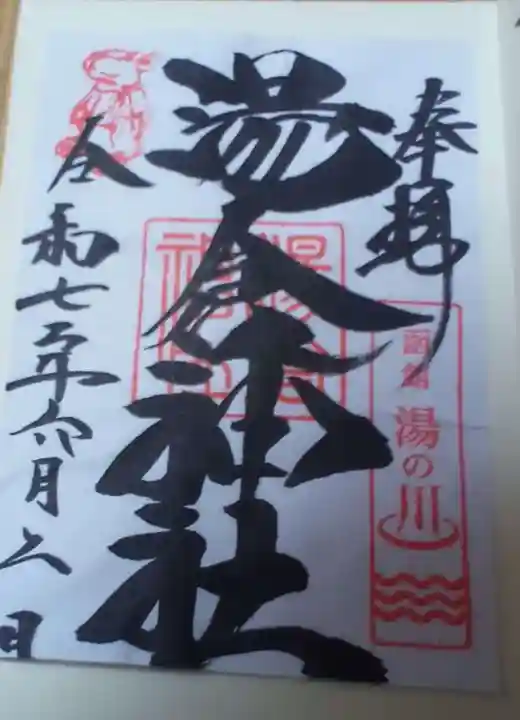 奉拝
函館 湯の川
湯倉神社
令和七年六月 日